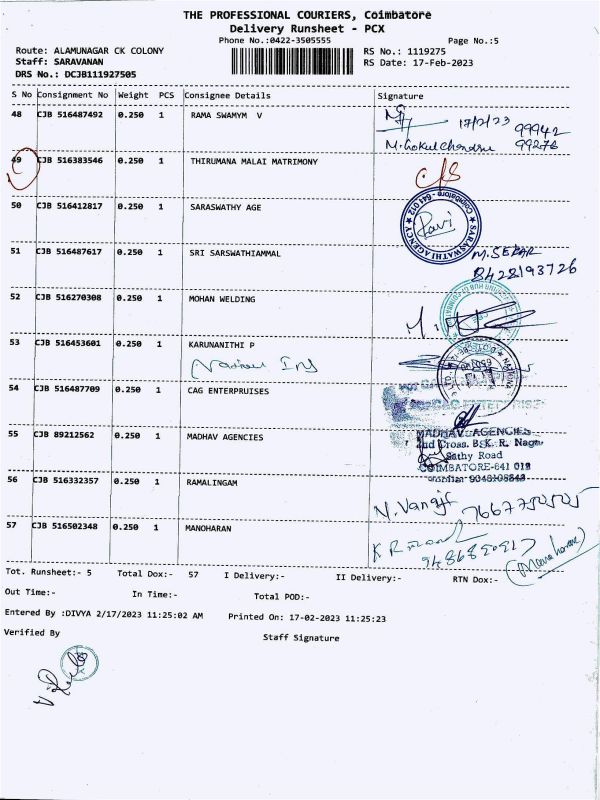 THE PROFESSIONAL COURIERS, Coimbatore
Delivery Runsheet - PCX
Phone No.:0422-3505555
Page No.:5
Route: ALAMUNAGAR CK COLONY
RS No.: 1119275
Staff: SARAVANAN
RS Date: 17-Feb-2023
DRS No.: DCJB111927505
S No Consignment No Weight PCS Consignee Details Signature
48 CJB 516487492 0.250 1 RAMA SWAMYM V
17/2/23 99942
M. Gokul Chandru 99276
49 CJB 516383546 0.250 1 THIRUMANA MALAI MATRIMONY
50 CJB 516412817 0.250 1 SARASWATHY AGE
SARASWATHI AGENCY ★ Coimbatore - 641 012 ★
Ravi
51 CJB 516487617 0.250 1 SRI SARSWATHIAMMAL
M. SEKAR
8428193726
52 CJB 516270308 0.250 1 MOHAN WELDING
53 CJB 516453601 0.250 1 KARUNANITHI P
54 CJB 516487709 0.250 1 CAG ENTERPRUISES
55 CJB 89212562 0.250 1 MADHAV AGENCIES
MADHAV AGENCIES
2nd Cross. B. K. R. Nagar
Sathy Road
COIMBATORE-641 012
56 CJB 516332357 0.250 1 RAMALINGAM
57 CJB 516502348 0.250 1 MANOHARAN
(Manoharan)
Tot. Runsheet:- 5 Total Dox:- 57 I Delivery:- II Delivery:- RTN Dox:-
Out Time:- In Time:- Total POD:-
Entered By :DIVYA 2/17/2023 11:25:02 AM Printed On: 17-02-2023 11:25:23
Verified By
Staff Signature